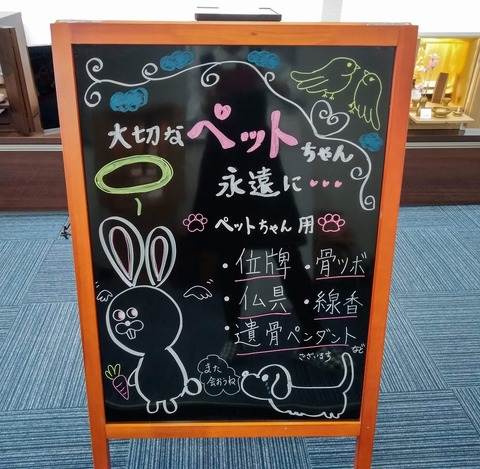 大切なペットちゃん
永遠に・・・
ペットちゃん用
・位牌 ・骨ツボ
・仏具 ・線香
・遺骨ペンダント
など
ございます
また
会おうね